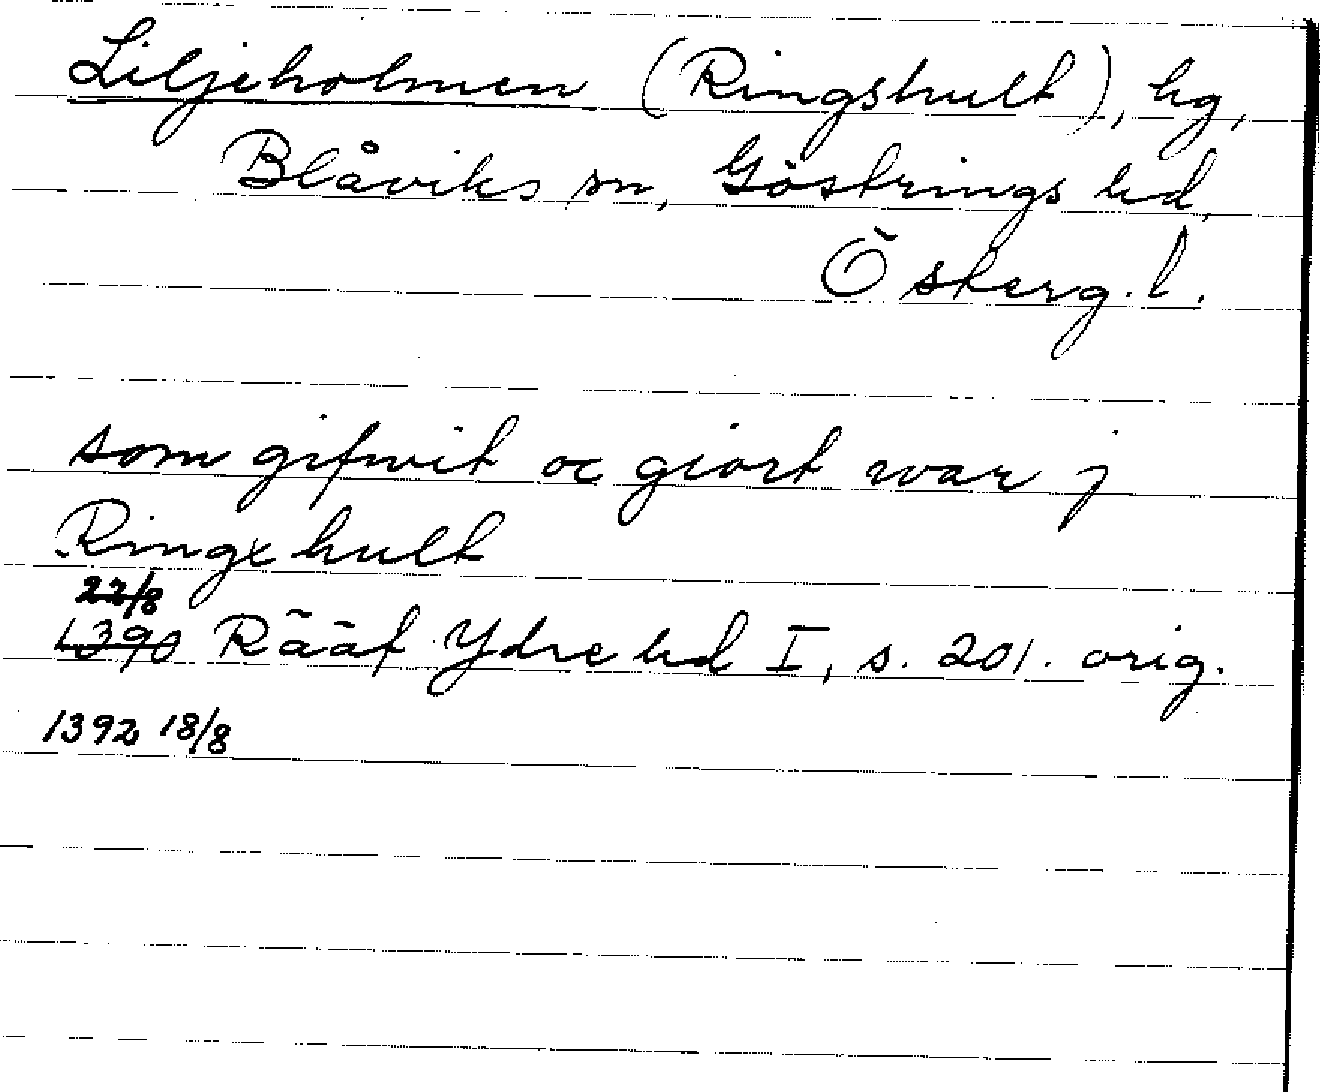 Liljeholmen (Ringshult), hg,
Blåviks sn, Göstrings hd,
Österg. l.
som gifwit oc giort war j
Ringxhult
22/8
1390 Rääf Ydre hd I, s. 201. orig.
1392 18/8